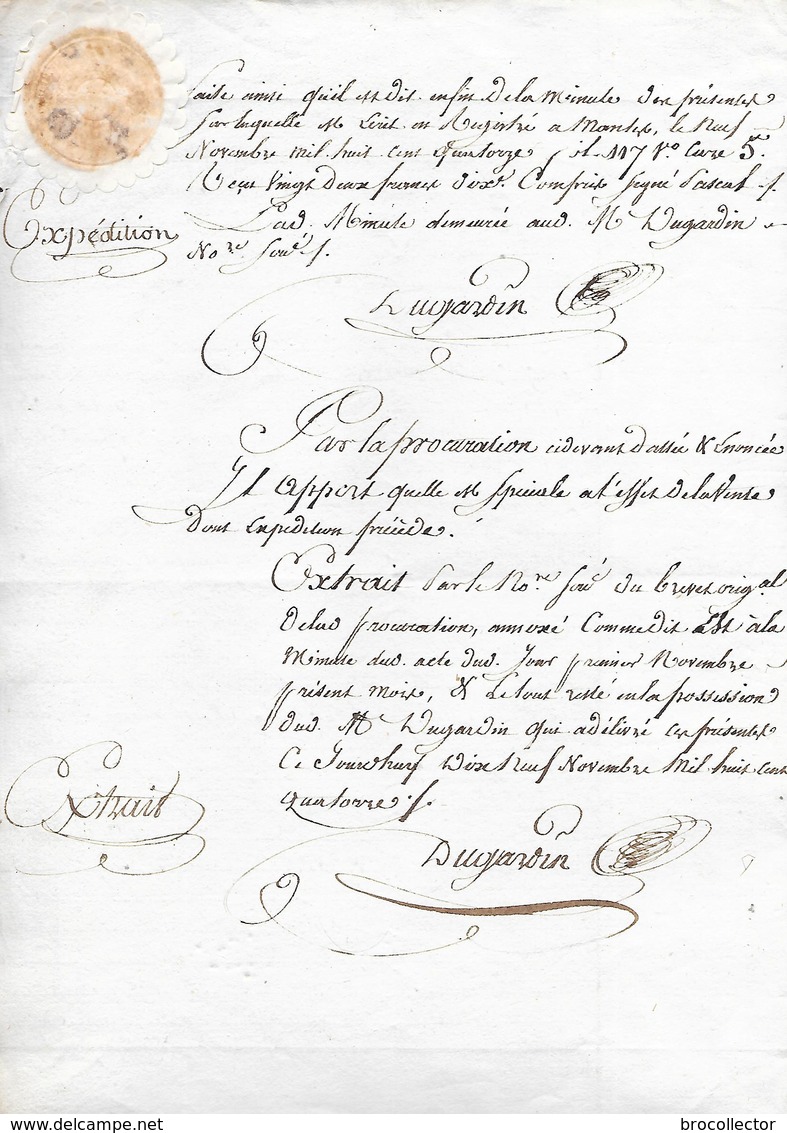 faite ainsi qu'il est dit enfin de la Minute des présentes
sur laquelle est Ecrit en Registré a Mantes, le Neuf
Novembre Mil huit Cent Quatorze, fol. 117 Vo. Case 5e.
Reçu Vingt deux francs dixe. Compris signé Pascal /.
Expédition
Lad. Minute demeurée aud. Me Dugardin
Nore. soué /.
Dugardin
Par la procuration cidevant dattée & Enoncée
Il appert quelle est spéciale a l'effet de la Vente
dont Expédition précède.
Extrait Par le Nore. soué du brevet origal.
delad procuration, annexé Comme dit Est à la
Minute dud. acte dud. Jour premier Novembre
présent mois, & Le tout resté en la possession
dud. Me Dugardin qui a délivré ces présentes
Ce Jourd'huy Dix Neuf Novembre Mil huit cent
Extrait
quatorze ./.
Dugardin
delcampe.net
brocollector